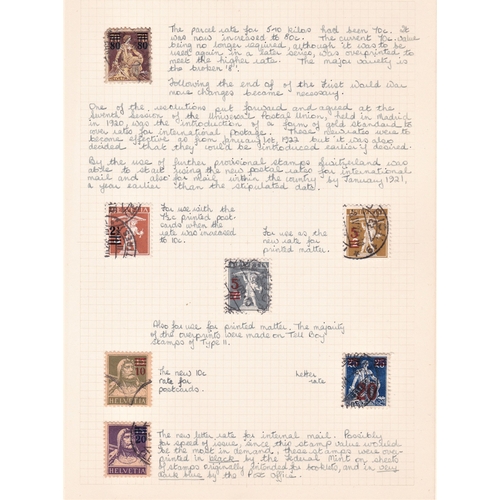 The parcel rate for 5-10 kilos had been 70c. It
was now increased to 80c. The current 70c. value
being no longer required, although it was to be
used again in a later series, was overprinted to
meet the higher rate. The major variety is
the broken '8'.
Following the end of the First World War
more changes became necessary.
One of the resolutions put forward and agreed at the
seventh session of the Universal Postal Union, held in Madrid
in 1920, was the introduction of a form of gold standard to
cover rates for international postage. These new rates were to
become effective as from January 1st, 1922 but it was also
decided that they could be introduced earlier if desired.
By the use of further provisional stamps Switzerland was
able to start using the new postal rates for international
mail and also for mail within the country by January 1921,
a year earlier than the stipulated date.
For use with the
7½c printed post-
cards when the
rate was increased
to 10c.
For use as the
new rate for
printed matter.
Also for use for printed matter. The majority
of the overprints were made on Tell Boy
stamps of Type II.
The new 10c
rate for
postcards.
Letter
rate
HELVETIA
The new letter rate for internal mail. Possibly
for speed of issue, since this stamp value would
be the most in demand, these stamps were over-
printed in black by the Federal Mint on sheets
of stamps originally intended for booklets, and in very
dark blue by the Post Office.
HELVETIA